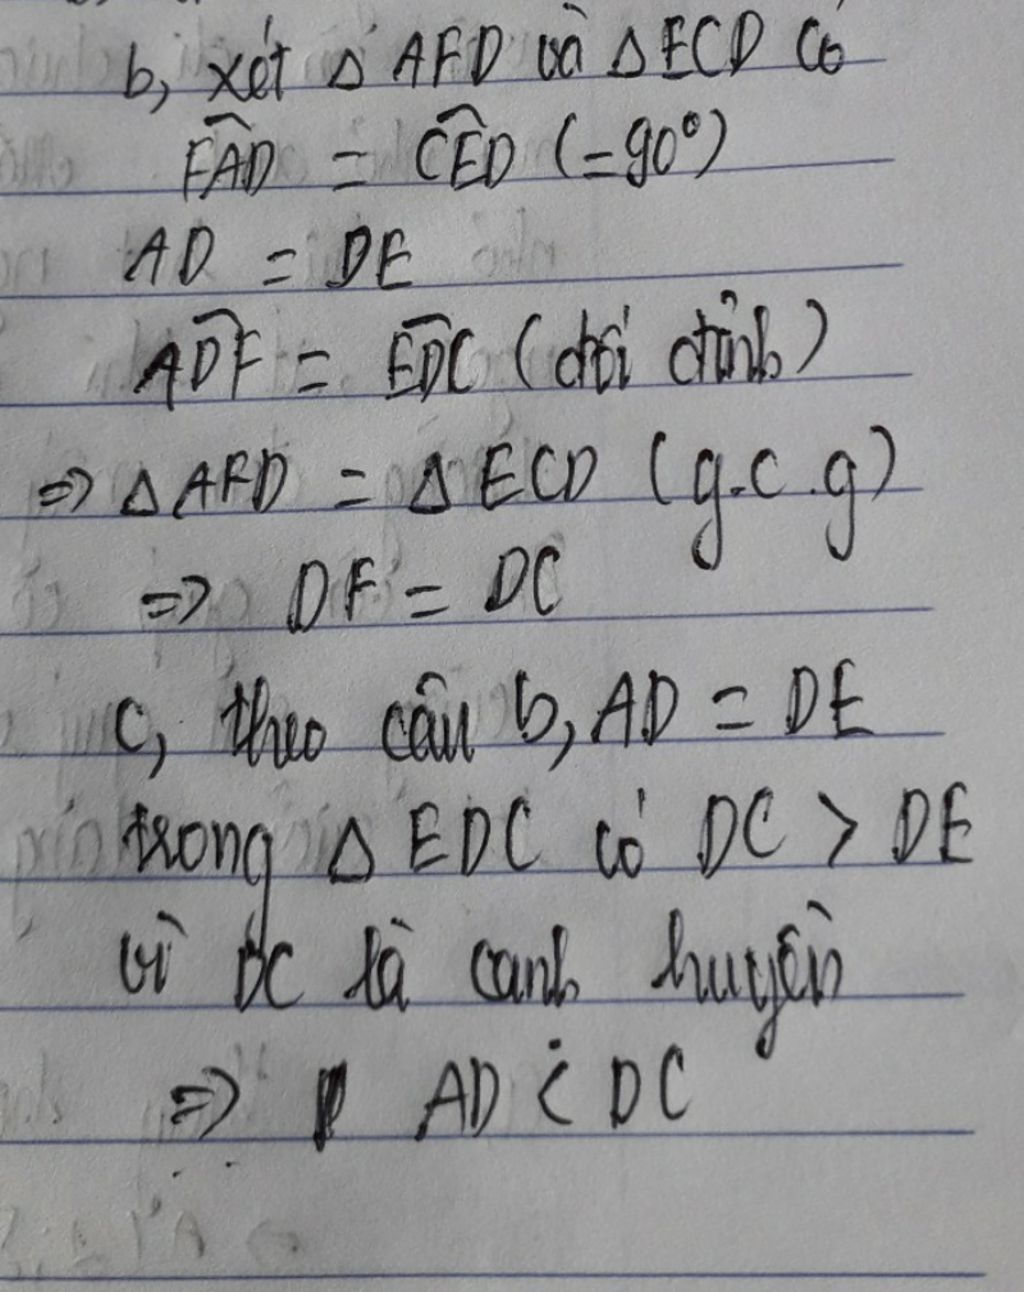 b, xét Δ AFD và Δ ECD có
FÂD = CÊD (=90°)
AD = DE
ADF = EDC (đối đỉnh)
=> Δ AFD = Δ ECD (g.c.g)
=> DF = DC
c, theo câu b, AD = DE
trong Δ EDC có DC > DE
vì DC là cạnh huyền
=> AD < DC